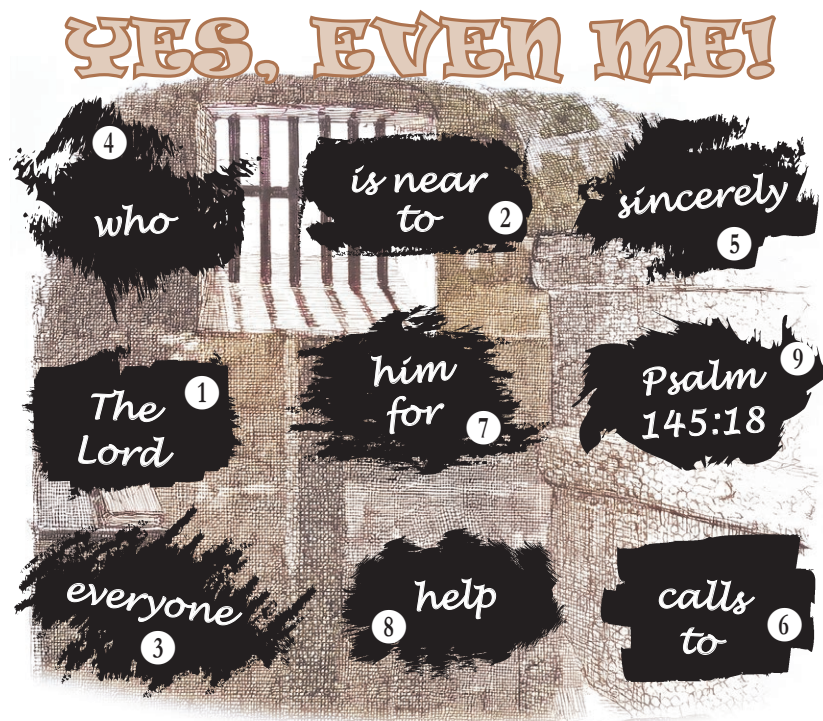 YES, EVEN ME!
4
who
is near
to
2
sincerely
5
The
Lord
1
him
for
7
Psalm
145:18
9
everyone
3
help
8
calls
to
6